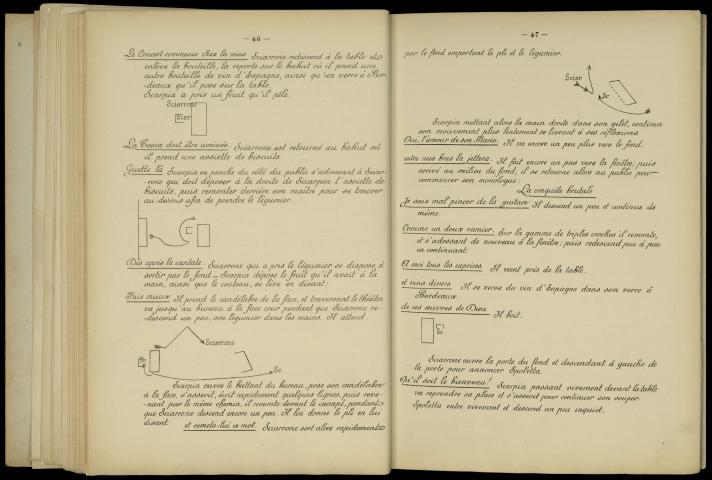 — 46 —
Le Concert commence chez la reine Sciarrone redescend à la table et
enlève la bouteille, la reporte sur le bahut où il prend une
autre bouteille de vin d'Espagne, ainsi qu'un verre à Bor-
-deaux qu'il pose sur la table.
Scarpia a pris un fruit qu'il pèle.
Sciarrone
Scar
La Tosca doit être arrivée. Sciarrone est retourné au bahut où
il prend une assiette de biscuits
Guette là Scarpia se penche du côté du public s'adressant à Sciar-
-rone qui doit déposer à la droite de Scarpia l'assiette de
biscuits, puis remonter derrière son maître pour se trouver
au-dessus afin de prendre le légumier.
Dès après la cantate. Sciarrone qui a pris le légumier se dispose à
sortir par le fond _ Scarpia dépose le fruit qu'il avait à la
main, ainsi que le couteau, se lève en disant:
Fais mieux Il prend le candélabre de la face, et traversant le théâtre
va jusqu'au bureau à la face cour pendant que Sciarrone re-
-descend un peu, son légumier dans les mains. Il attend.
Sciarrone
Sc.
Scarpia ouvre le battant du bureau, pose son candélabre
à la face, s'asseoit, écrit rapidement quelques lignes, puis reve-
-nant par le même chemin, il remonte devant le canapé, pendant
que Sciarrone descend encore un peu. Il lui donne le pli en lui
disant: et remets-lui ce mot. Sciarrone sort alors rapidement
— 47 —
par le fond emportant le pli et le légumier.
Sciar
Sc
Scarpia mettant alors la main droite dans son gilet, continue
son mouvement plus lentement se livrant à ses réflexions
Oui, l'amour de son Mario. Il va encore un peu plus vers le fond.
entre mes bras la jettera. Il fait encore un pas vers la fenêtre; puis
arrivé au milieu du fond; il se retourne alors au public pour
commencer son monologue:
La conquête brutale
Je sais mal pincer de la guitare Il descend un peu et continue de
même.
Comme un doux ramier. Sur la gamme de triples croches il remonte,
et s'adossant de nouveau à la fenêtre; puis redescend peu à peu
en continuant:
A moi tous les caprices. Il vient près de la table.
et vins divers Il se verse du vin d'Espagne dans son verre à
Bordeaux
de ces œuvres de Dieu Il boit.
Sc.
Sciarrone ouvre la porte du fond et descendant à gauche de
la porte pour annoncer Spoletta.
Qu'il soit le bienvenu! Scarpia passant vivement devant la table
va reprendre sa place et s'asseoit pour continuer son souper.
Spoletta entre vivement et descend un peu inquiet.